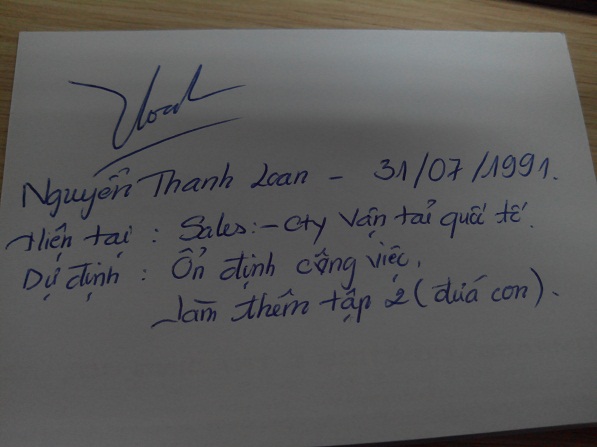 Loan
Nguyễn Thanh Loan - 31/07/1991.
Hiện tại : Sales :- Cty vận tải quốc tế.
Dự định : Ổn định công việc.
Làm thêm tập 2 (đứa con).